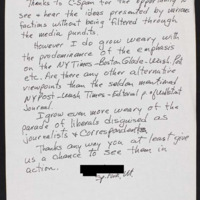 Thanks to C-Span for the opportunity to
see & hear the ideas presented by various
factions without being filtered through
the media pundits.
However I do grow weary with
the predominence of the emphasis
on the NY Times - Boston Globe - Wash. Post
etc. Are there any other alternative
viewpoints than the seldom mentioned
NY Post - Wash Times - Editorial p. of Wall St
Journal.
I grow even more weary of the
parade of liberals disguised as
journalists & Correspondents
Thanks any way you at least give
us a chance to see them in
action.